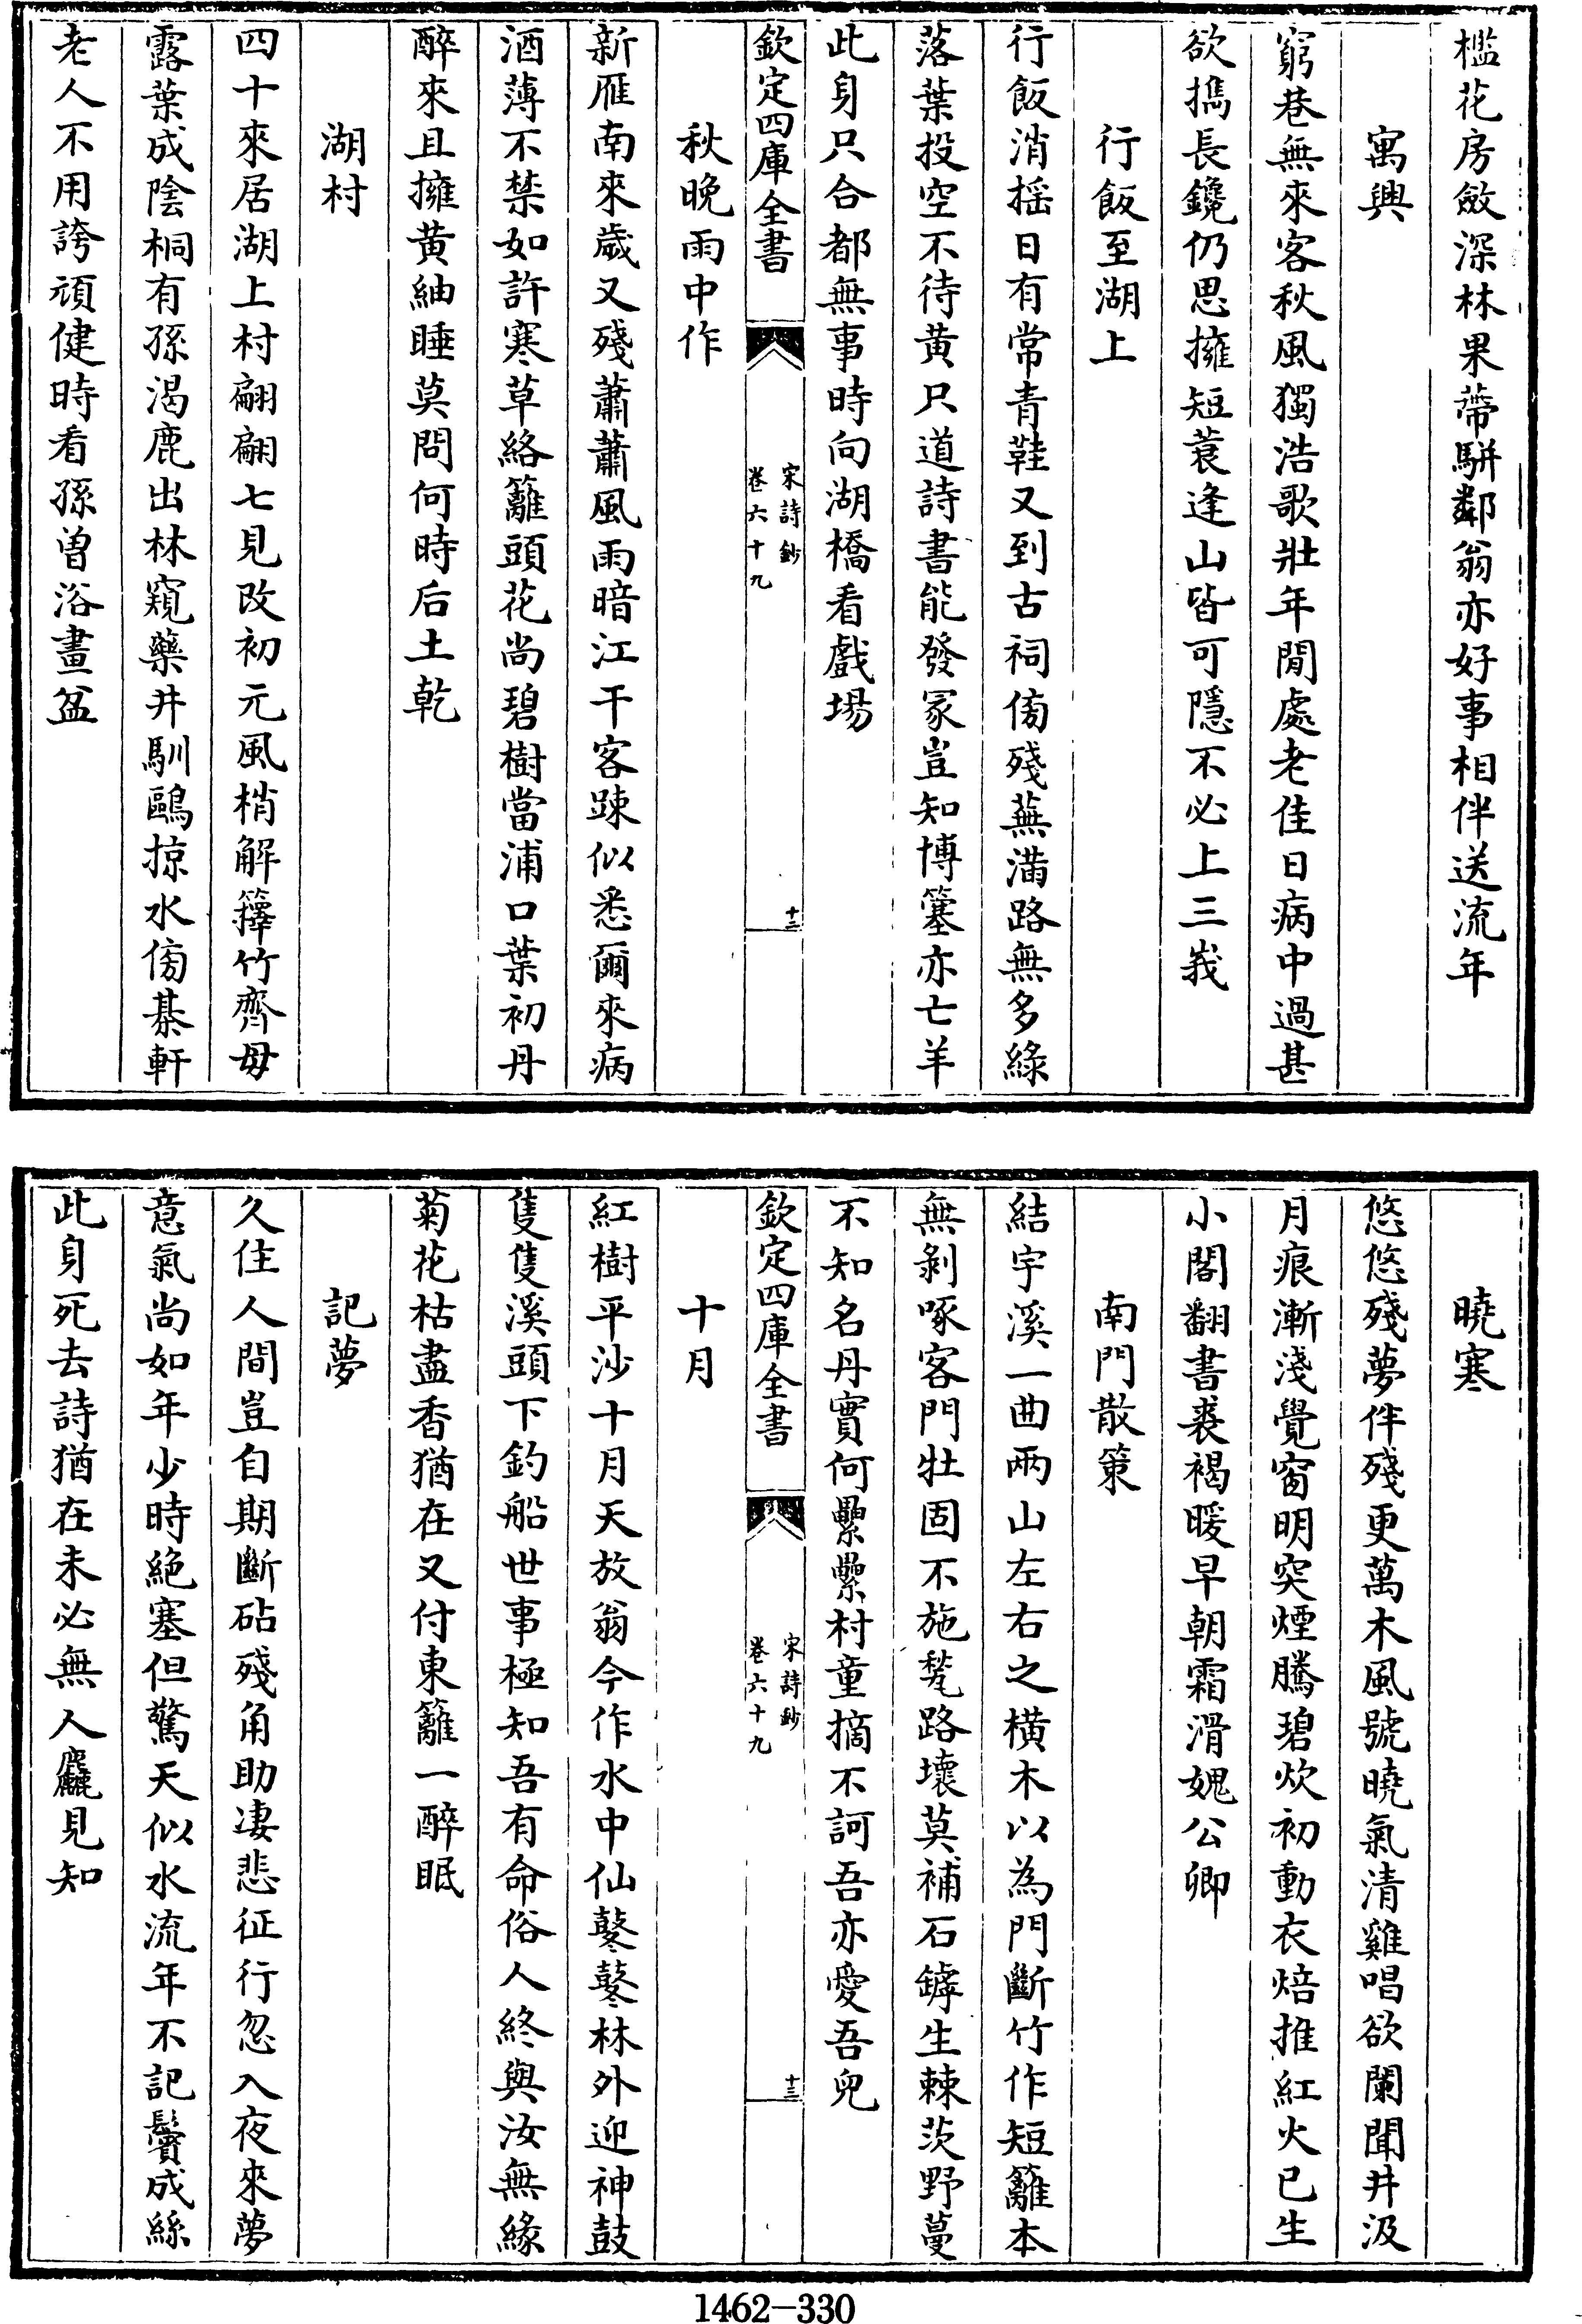 檻花房斂深林果蔕駢鄰翁亦好事相伴送流年
寓興
窮巷無來客秋風獨浩歌壯年閒處老佳日病中過甚
欲擕長鑱仍思擁短蓑逢山皆可隱不必上三峩
行飯至湖上
行飯消揺日有常青鞋又到古祠傍殘蕪滿路無多綠
落葉投空不待黄只道詩書能發冢豈知博簺亦亡羊
此身只合都無事時向湖橋看戲場
欽定四庫全書
宋詩鈔
卷六十九
十三
秋晚雨中作
新雁南來歲又殘蕭蕭風雨暗江干客踈似悉爾來病
酒薄不禁如許寒草絡籬頭花尚碧樹當浦口葉初丹
醉來且擁黄紬睡莫問何時后土乾
湖村
四十來居湖上村翩翩七見改初元風梢解籜竹齊母
露葉成陰桐有孫渴鹿出林窺藥井馴鷗掠水傍棊軒
老人不用誇頑健時看孫曾浴畫盆
曉寒
悠悠殘夢伴殘更萬木風號曉氣清雞唱欲闌聞井汲
月痕漸淺覺窗明突煙騰碧炊初動衣焙推紅火已生
小閣翻書裘褐暖早朝霜滑媿公卿
南門散策
結宇溪一曲兩山左右之横木以為門斷竹作短籬本
無剝啄客門牡固不施甃路壞莫補石罅生棘茨野蔓
不知名丹實何纍纍村童摘不訶吾亦愛吾兒
欽定四庫全書
宋詩鈔
卷六十九
十三
十月
紅樹平沙十月天放翁今作水中仙鼕鼕林外迎神鼓
隻隻溪頭下釣船世事極知吾有命俗人終與汝無緣
菊花枯盡香猶在又付東籬一醉眠
記夢
久住人間豈自期斷砧殘角助凄悲征行忽入夜來夢
意氣尚如年少時絶塞但驚天似水流年不記鬢成絲
此身死去詩猶在未必無人麤見知
1462-330